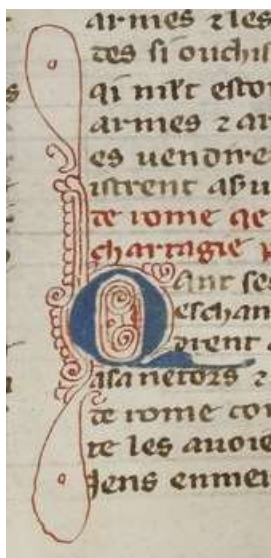 armes ⁊ les
des si ouchist
qi nult estoi
armes ⁊ ar
es uendire
istrent asu
de rome qe
chartagie
Qant ses
eschan
dirent a
asanetors ⁊
de rome con
te les auoie
gens enme